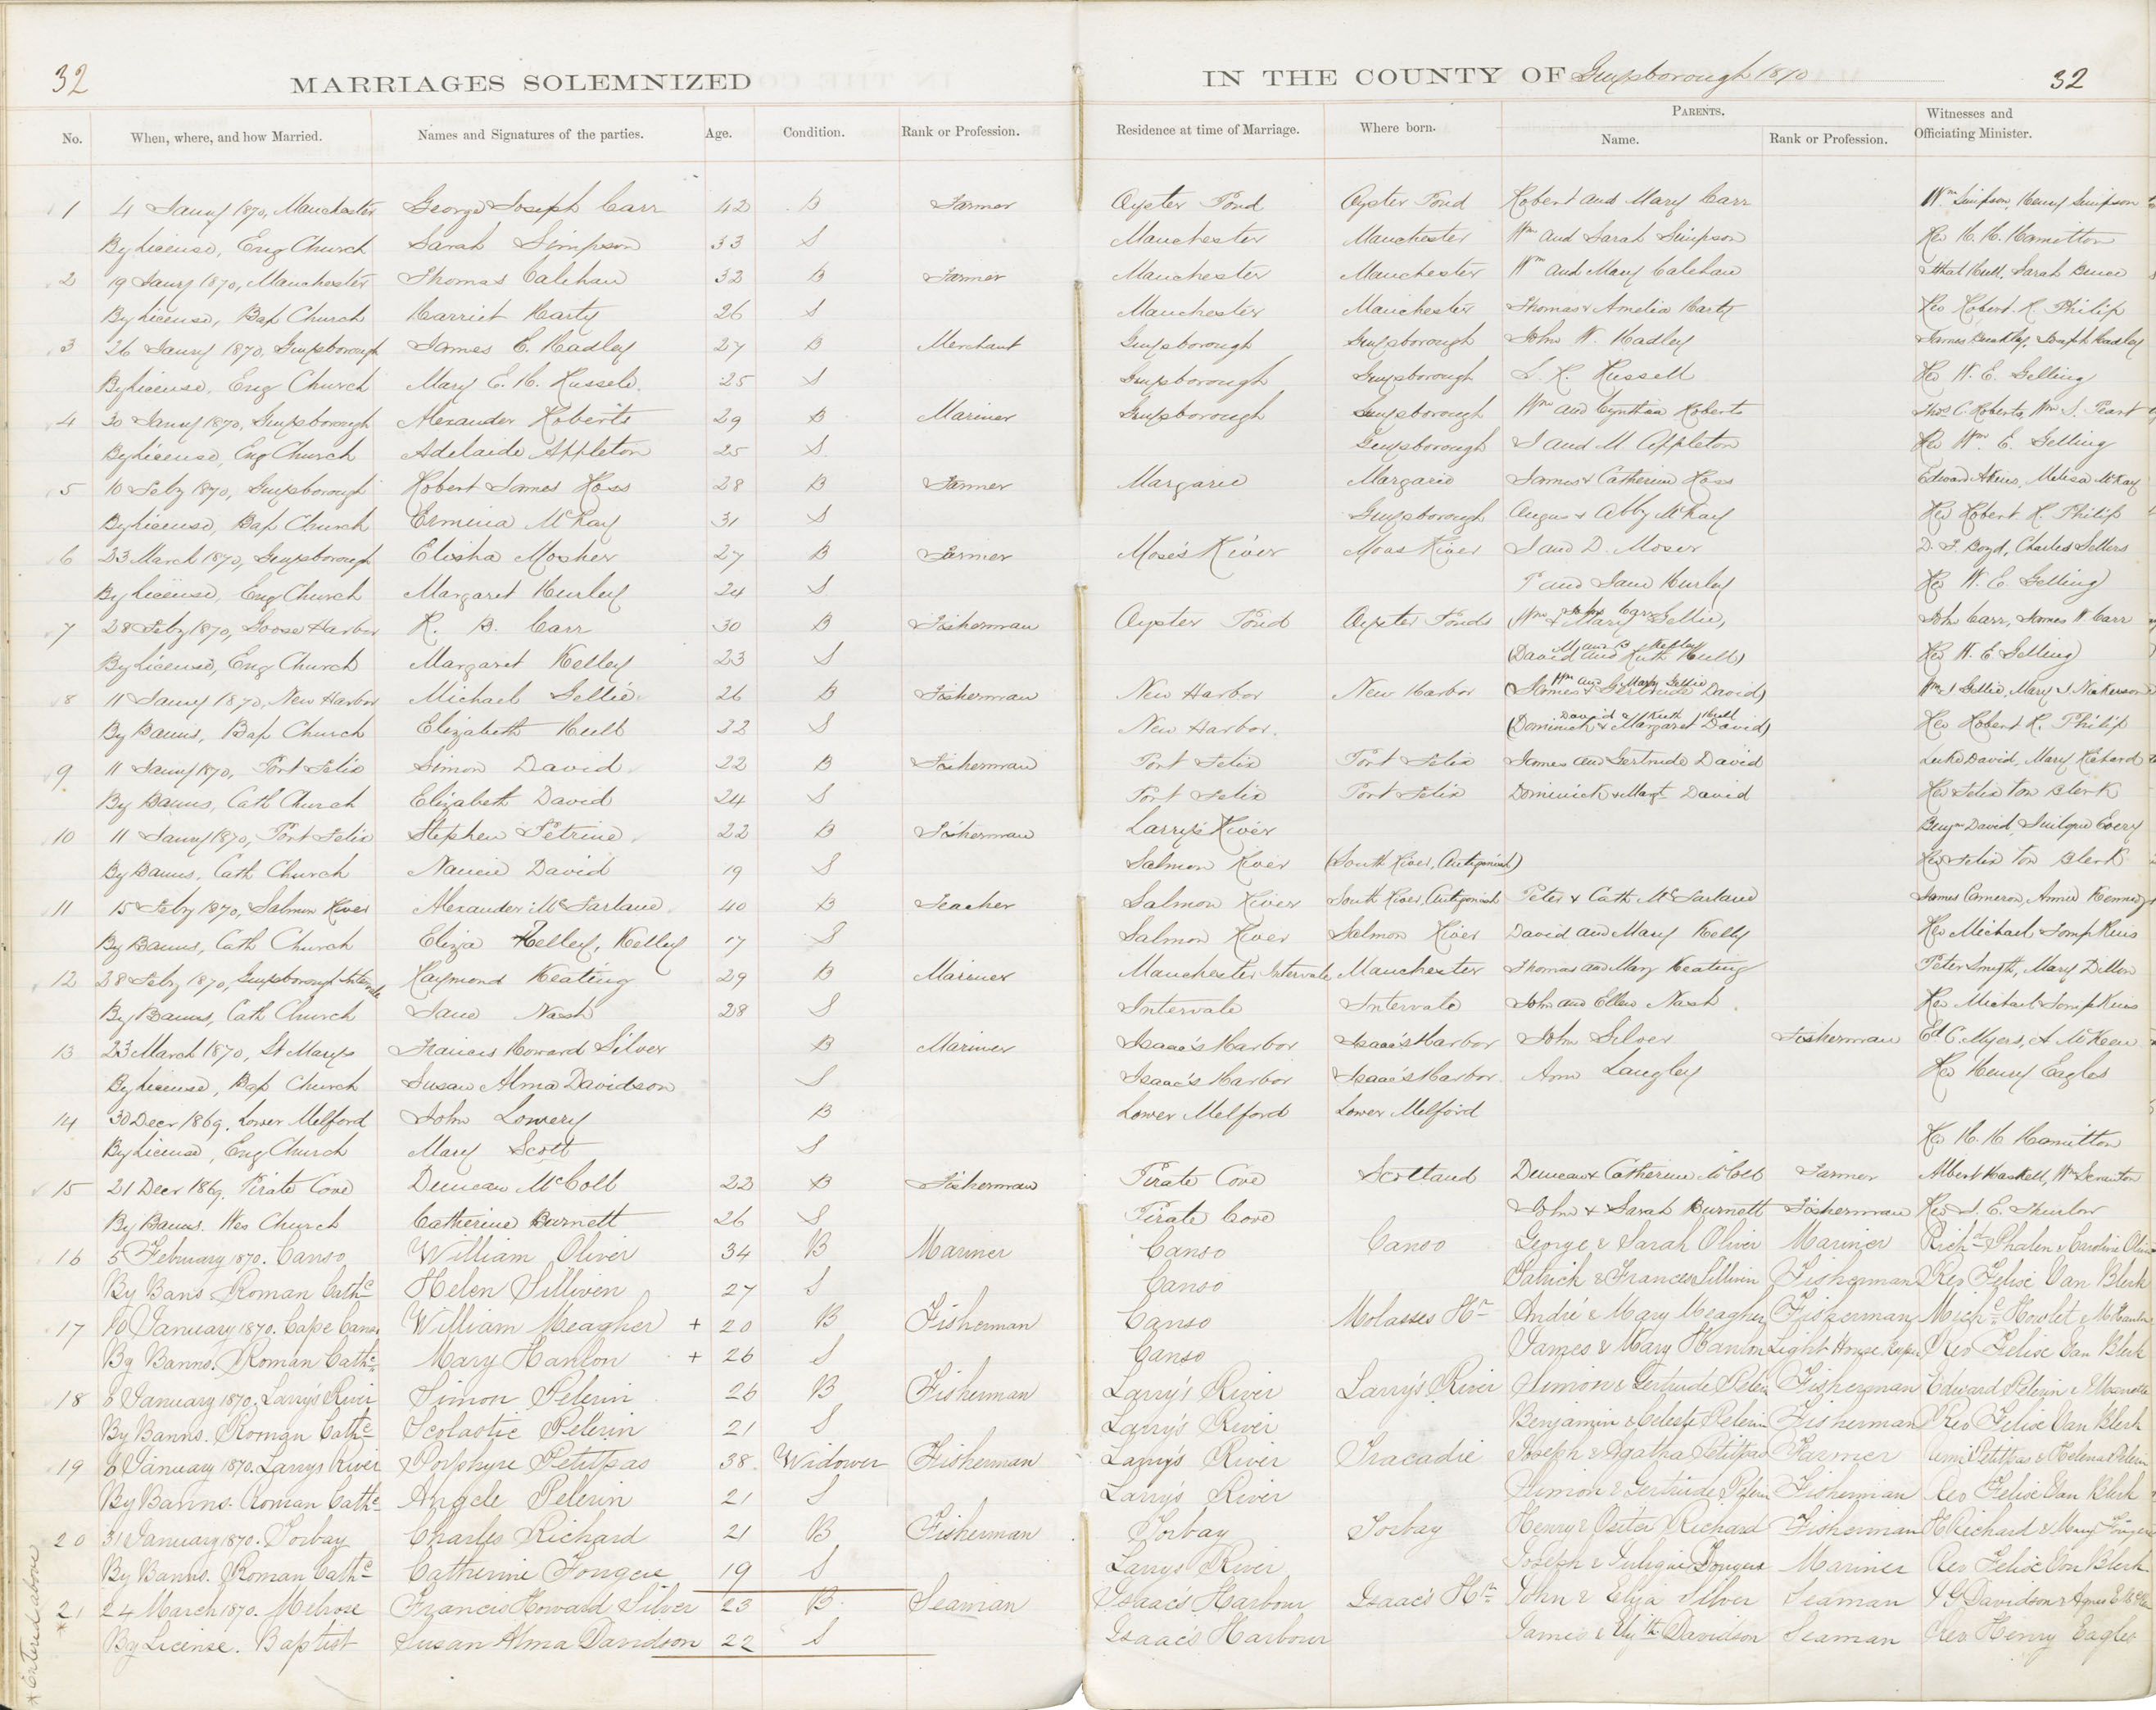 32 MARRIAGES SOLEMNIZED IN THE COUNTY OF Guysborough 1870 32
No. When, where, and how Married. Names and Signatures of the parties. Age. Condition. Rank or Profession. Residence at time of Marriage. Where born. PARENTS. Name. Rank or Profession. Witnesses and Officiating Minister.
1 4 Jany 1870, Manchester George Joseph Carr 42 B Farmer Oyster Pond Oyster Pond Robert and Mary Carr Wm Simpson, Henry Simpson
By License, Eng Church Sarah Simpson 33 S Manchester Manchester Wm and Sarah Simpson Rev H. H. Hamilton
2 19 Jany 1870, Manchester Thomas Calehan 32 B Farmer Manchester Manchester Wm and Mary Calehan Hull, Sarah Bruce
By License, Bap Church Harriet Harty 26 S Manchester Manchester Thomas & Amelia Harty Rev Robert R. Philip
3 26 Jany 1870, Guysborough James E. Hadley 27 B Merchant Guysborough Guysborough John W. Hadley James Joseph Hadley
By License, Eng Church Mary E. H. Russell 25 S Guysborough Guysborough S. R. Russell Rev W. E. Gelling
4 30 Jany 1870, Guysborough Alexander Roberts 29 B Mariner Guysborough Guysborough Wm and Cynthia Roberts Thos C Roberts, Wm J. Peart
By License, Eng Church Adelaide Appleton 25 S. Guysborough J and M. Appleton Rev Wm E. Gelling
5 10 Feby 1870, Guysborough Robert James Ross 28 B Farmer Margarie Margarie James & Catherine Ross Edward Akins, Melisa McKay
By License, Bap Church Ermina McKay 31 S Guysborough Angus & Abby McKay Rev Robert R. Philip
6 23 March 1870, Guysborough Elisha Mosher 27 B Farmer Mose's River Moas River J and D. Moser D. F. Boyd, Charles Sellers
By License, Eng Church Margaret Hurley 24 S. P and Jane Hurley Rev W. E. Gelling
7 28 Feby 1870, Goose Harbor R. B. Carr 30 B Fisherman Oyster Pond Oyster Ponds John Carr (Wm & Mary Gellie) John Carr, James W Carr
By License, Eng Church Margaret Kelley 23 S M and B Kelley (David and Ruth Hull) Rev W. E Gelling
8 11 Jany 1870, New Harbor Michael Gellie 26 B Fisherman New Harbor New Harbor Wm and Mary Gellie (James & Gertrude David) Wm J Gellie, Mary J Nickerson
By Banns, Bap Church Elizabeth Hull 22 S New Harbor. David & Ruth Hull (Dominick & Margaret David) Rev Robert R. Philip
9 11 Jany 1870, Port Felix Simon David 22 B Fisherman Port Felix Port Felix James and Gertrude David Luke David, Mary Richard
By Banns, Cath Church Elizabeth David 24 S Port Felix Port Felix Dominick & Margt David Rev Felix Von Blerk
10 11 Jany 1870, Port Felix Stephen Petrine 22 B Fisherman Larry's River Benjn David,
By Banns, Cath Church Nancie David 19 S Salmon River (South River, Antigonish) Rev Felix Von Blerk
11 15 Feby 1870, Salmon River Alexander McFarlane 40 B Teacher Salmon River South River, Antigonish Peter & Cath McFarlane James Cameron, Annie Kennedy
By Banns, Cath Church Eliza Kelley, Kelley 17 S Salmon River Salmon River David and Mary Kelly Rev Michael Tompkins
12 28 Feby 1870, Guysborough Intervale Raymond Keating 29 B Mariner Manchester Intervale Manchester Thomas and Mary Keating Peter Smyth, Mary Dillon
By Banns, Cath Church Jane Nash 28 S Intervale Intervale John and Ellen Nash Rev Michael Tompkins
13 23 March 1870, St Marys Francis Howard Silver B Mariner Isaac's Harbor Isaac's Harbor John Silver Fisherman Ed C. Myers, A McKeen
By License, Bap Church Susan Alma Davidson S Isaac's Harbor Isaac's Harbor Ann Langley Rev Henry Eagles
14 30 Decr 1869, Lower Melford John Lowery B Lower Melford Lower Melford
By License, Eng Church Mary Scott S Rev H. H Hamilton
15 21 Decr 1869, Pirate Cove Duncan McColl 22 B Fisherman Pirate Cove Scotland Duncan & Catherine McColl Farmer Albert Haskell, Wm Scranton
By Banns. Wes Church Catherine Burnett 26 S Pirate Cove John & Sarah Burnett Fisherman Rev J. E. Thurlow
16 5 February 1870. Canso William Oliver 34 B Mariner Canso Canso George & Sarah Oliver Mariner Richd Phalen & Caroline Oliver
By Bans Roman Cathc Helen Silliven 27 S Canso Patrick & Frances Sillivin Fisherman Rev Felix Van Blerk
17 10 January 1870. Cape Canso William Meagher + 20 B Fisherman Canso Molasses Hr André & Mary Meagher Fisherman Michl Howlet & M Hanlon
By Banns. Roman Cathc Mary Hanlon + 26 S Canso James & Mary Hanlon Light House Keeper Rev Felix Van Blerk
18 8 January 1870. Larry's River Simon Pelerin 26 B Fisherman Larry's River Larry's River Simon & Gertrude Pelerin Fisherman Edward Pelerin &
By Banns. Roman Cathc Scolastic Pelerin 21 S Larry's River Benjamin & Celeste Pelerin Fisherman Rev Felix Van Blerk
19 6 January 1870. Larrys River Porphyre Petitpas 38. Widower Fisherman Larry's River Tracadie Joseph & Agatha Petitpas Farmer Petitpas & Helena Pelerin
By Banns. Roman Cathc Angele Pelerin 21 S Larry's River Simon & Gertrude Pelerin Fisherman Rev Felix Van Blerk
20 31 January 1870. Torbay Charles Richard 21 B Fisherman Torbay Torbay Henry & Richard Fisherman H Richard & Mary Fougere
By Banns. Roman Cathc Catherine Fougere 19 S Larrys River Joseph & Fougere Mariner Rev Felix Van Blerk
21 * 24 March 1870. Melrose Francis Howard Silver 23 B. Seaman Isaac's Harbour Isaac's Hr John & Eliza Silver Seaman Davidson & Agnes
By License. Baptist Susan Alma Davidson 22 S Isaac's Harbour James & Elizth Davidson Seaman Rev Henry Eagles
* Entered above